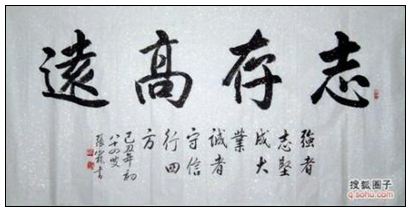 志存高遠
強者
志堅
成大
業
誠者
守信
行四
方
己丑年初
八十四叟
張書
搜狐圈子
q.sohu.com